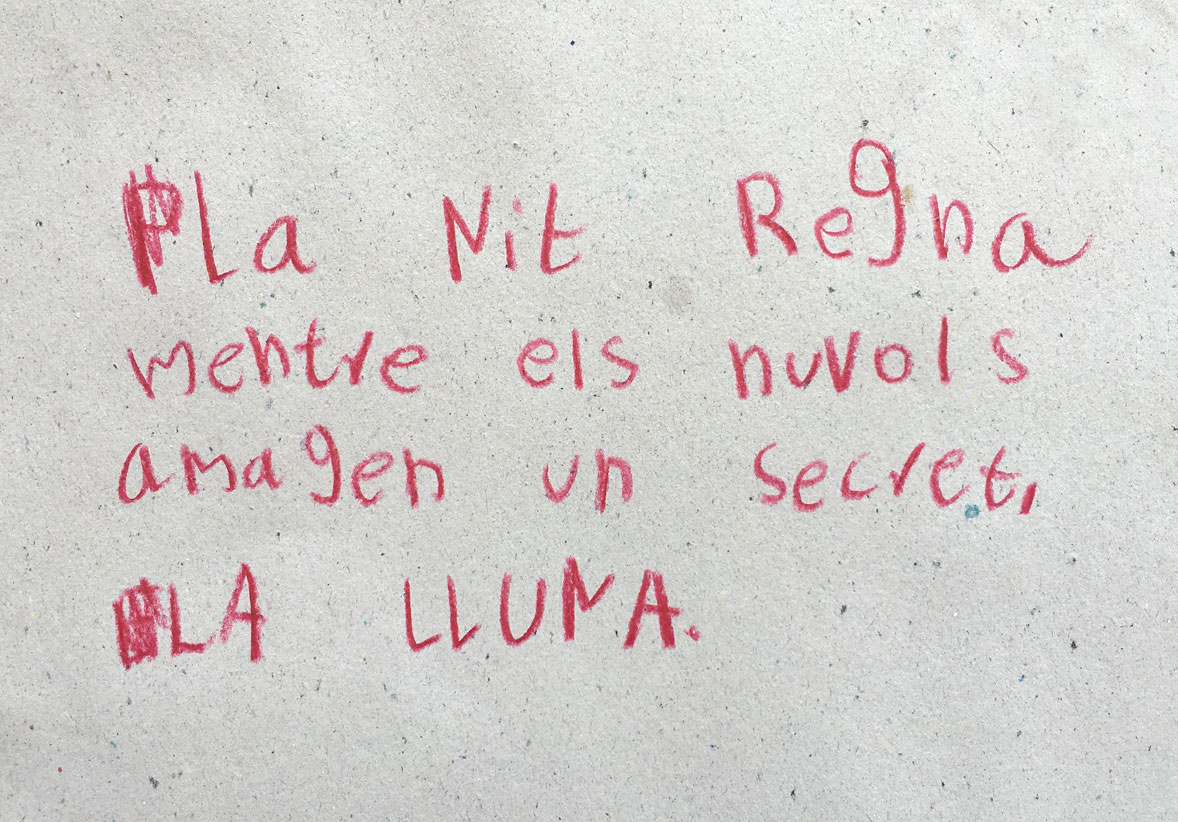 La Nit Regna
mentre els nuvols
amagen un secret,
LA LLUNA.